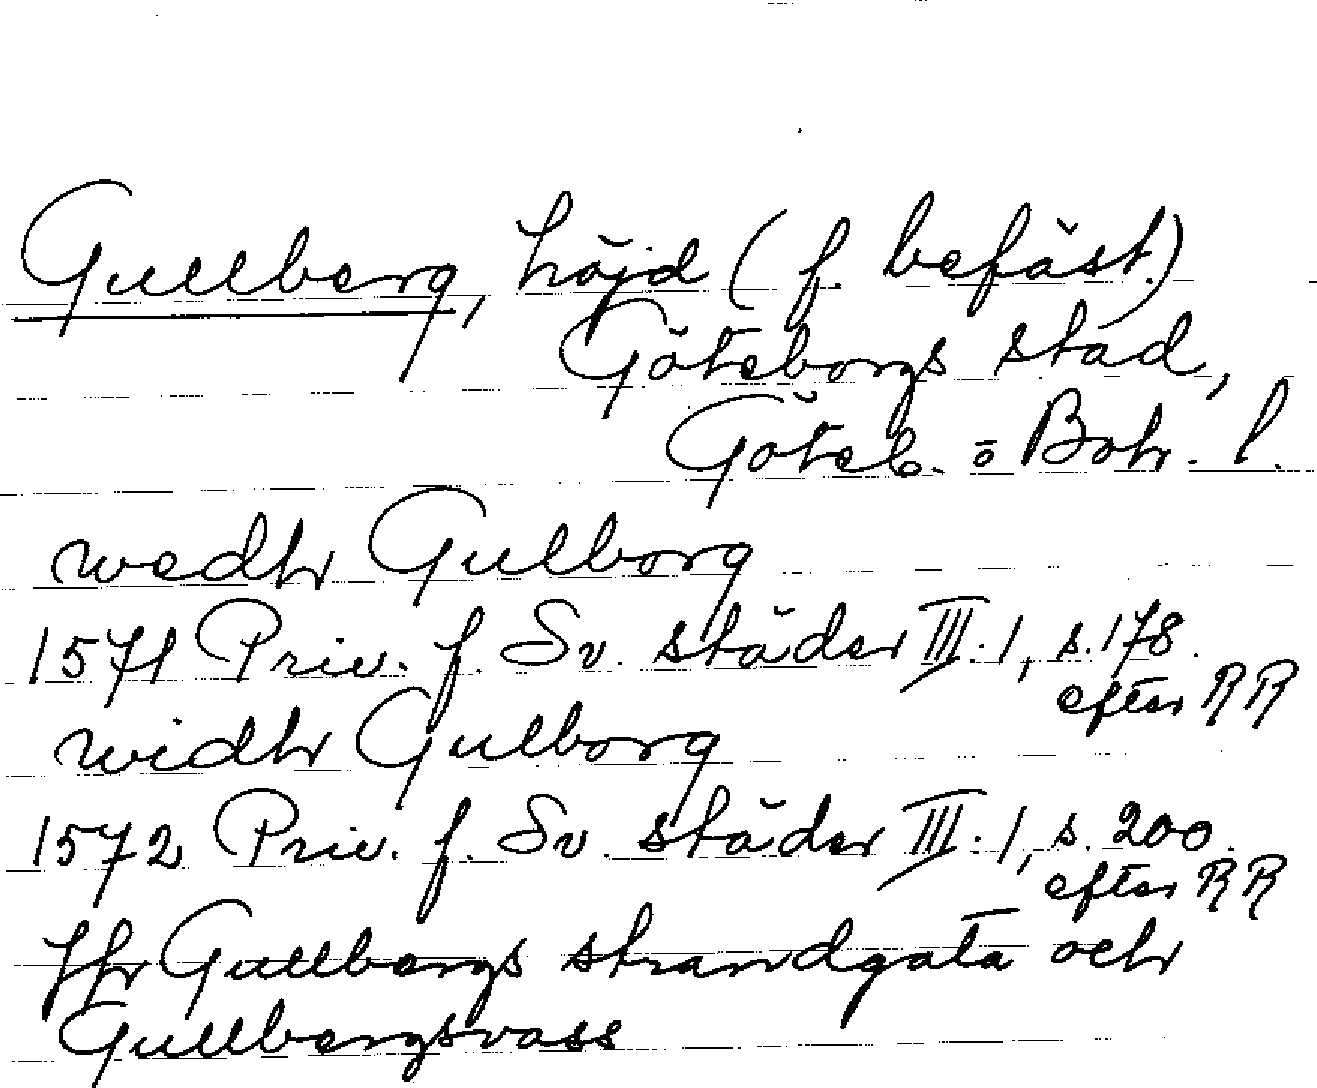 Gullberg, höjd (f. befäst.)
Göteborgs stad,
Göteb. o Boh. l.
wedh Gulborg
1571 Priv. f. Sv. städer III.1, s.178.
efter RR
widh Gulborg
1572 Priv. f. Sv. städer III.1, s. 200.
efter RR
Jfr Gullbergs strandgata och
Gullbergsvass